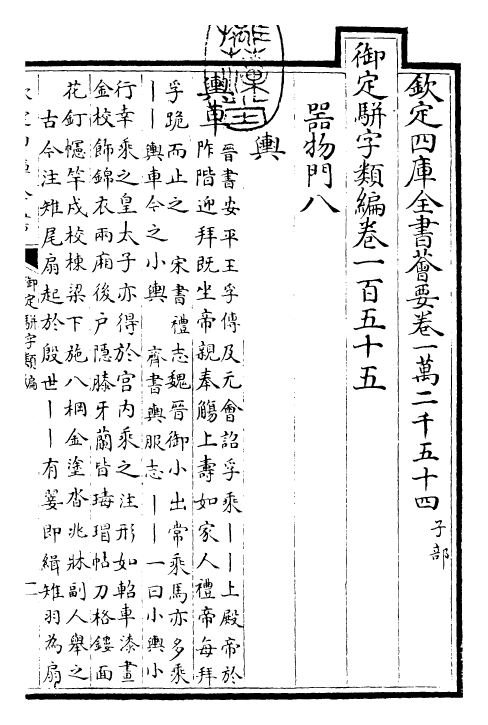 欽定四庫全書薈要卷一萬二千五十四 子部
御定駢字類編卷一百五十五
器物門八
輿
輿車 晉書安平王孚傳及元會詔孚乘丨丨上殿帝於
阼階迎拜既坐帝親奉觴上壽如家人禮帝每拜
孚跪而止之 宋書禮志魏晉御小出常乘馬亦多乘
丨丨輿車今之小輿 齊書輿服志丨丨一曰小輿小
行幸乘之皇太子亦得於宫内乘之注形如軺車漆畫
金校飾錦衣兩廂後户隱膝牙蘭皆瑇瑁帖刀格鏤面
花釘幰竿戍校棟梁下施八棡金塗沓兆牀副人舉之
古今注雉尾扇起於殷世丨丨有翣即緝雉羽為扇
御定駢字類編